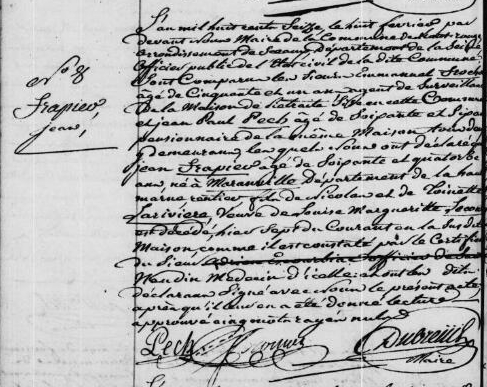 L'an mil huit cent Seize le huit fevrier par
devant Nous Maire de la Commune de Montrouge
arrondissement de Sceaux, Département de la Seine
officier public de l'Etat civil de la dite Commune,
Sont Comparu les Sieurs Emmanuel
No. 8
âgé de Cinquante et un ans agent de Surveillance
Frapier,
De la Maison de retraite Sise en cette Commune
jean,
et jean Paul Pech âgé de Soixante et
pensionnaire de la même Maison
y demeurans, lesquels Nous ont déclaré
jean Frapier âgé de Soixante et quatorze
ans, né à Maranville Département de la haute
marne rentier fils de Nicolas et de Toinette
Larivière, Veuve de Louise Margueritte
est décédé, hier Sept du Courant en la Susdite
Maison, comme il est constaté par le Certificat
du Sieur
Naudin Medecin d'icelle et ont les dits
déclarans Signé avec Nous le présent acte,
après qu'il leur en a été donné lecture
approuvé cinq mots rayés nuls
Pech
Maire